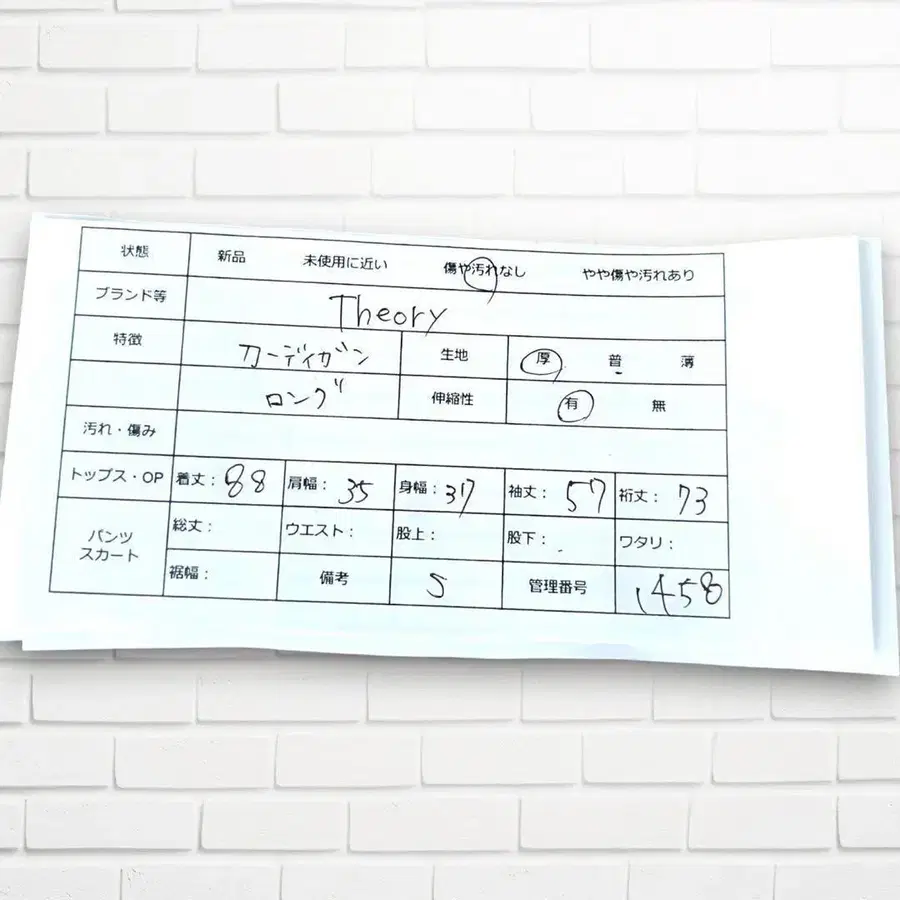 状態 新品 未使用に近い 傷や汚れなし やや傷や汚れあり
ブランド等 Theory
特徴 カーディガン 生地 厚 普 薄
ロング 伸縮性 有 無
汚れ・傷み
トップス・OP 着丈：88 肩幅：35 身幅：37 袖丈：57 裄丈：73
パンツ スカート 総丈： ウエスト： 股上： 股下： ワタリ：
裾幅： 備考 S 管理番号 1458